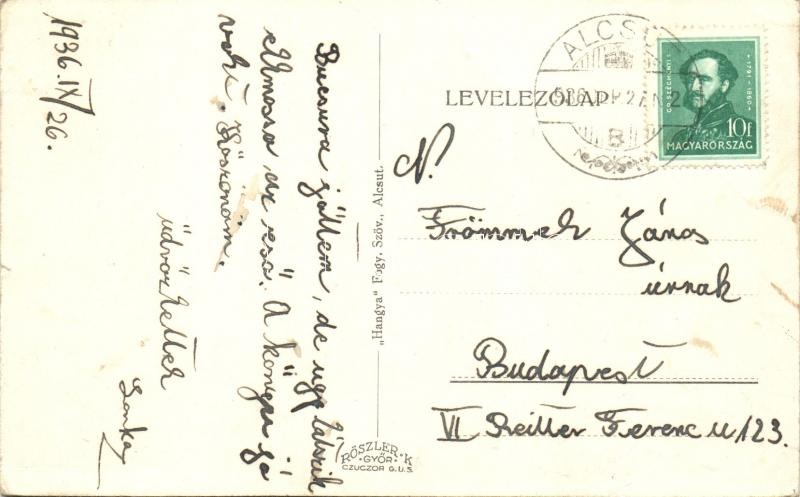 1936.IX/26.
Bucsura jöttem, de ugy látszik
elmossa az eső. A könyv jó
volt. Köszönöm.
üdvözlettel
„Hangya” Fogy. Szöv., Alcsut.
RÖSZLER·K
·GYŐR·
CZUCZOR G.U.5
LEVELEZŐLAP
ALCSUT
B
GR. SZÉCHENYI I. 1791-1860
10f
MAGYARORSZÁG
N.
Frömmel János
úrnak
Budapest
VI Reitter Ferenc u 123.